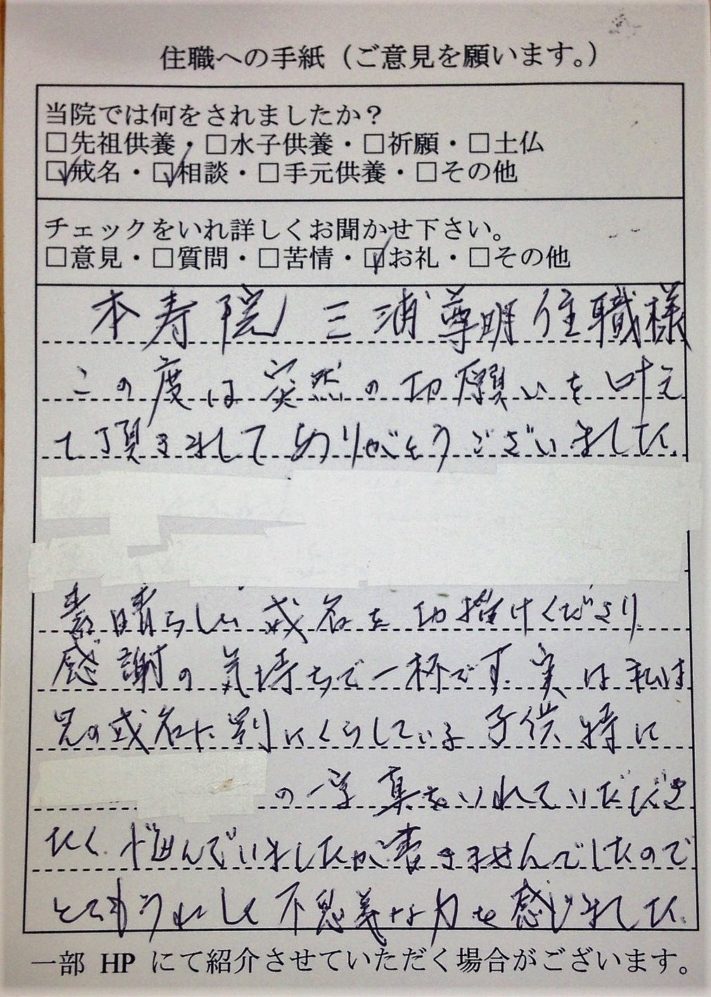 住職への手紙（ご意見を願います。）
当院では何をされましたか？
□先祖供養・□水子供養・□祈願・□土仏
☑戒名・☑相談・□手元供養・□その他
チェックをいれ詳しくお聞かせ下さい。
□意見・□質問・□苦情・☑お礼・□その他
本寿院 三浦尊明住職様
この度は突然の切願いを叶え
て頂きましてありがとうございました。
素晴らしい戒名を切授けくださり
感謝の気持ちで一杯です。実は私は
兄の戒名に別にくらしている子供 特に
の一字 真をいれていただき
たく 悩んでいましたが書きませんでしたので
とてもうれしく不思義な力を感じました。
一部 HP にて紹介させていただく場合がございます。